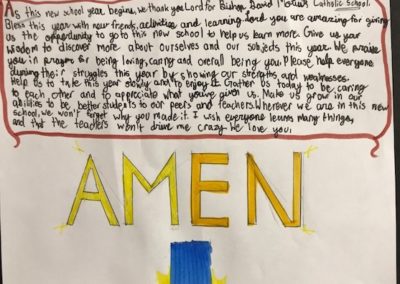 As this new school year begins, we thank you Lord for Bishop Catholic School.
Bless this year with new friends, activities and learning. Lord you are amazing for giving
us the opportunity to go to this new school to help us learn more. Give us your
wisdom to discover more about ourselves and our subjects this year. We praise
you in prayer for being loving, caring and overall being you. Please help everyone
during their struggles this year by showing our strengths and weaknesses.
Help us to take this year slowly and to enjoy it. Gather us today to be caring
to each other and to appreciate what you've given us. Make us grow in our
abilities to be better students to our peers and teachers. Wherever we are in this new
school, we won't forget why you made it. I wish everyone learns many things,
and that the teachers won't drive me crazy. We love you.
AMEN